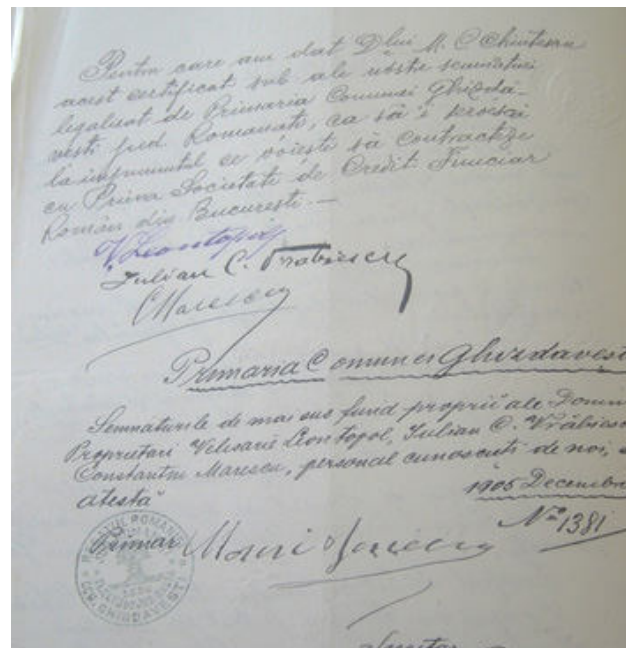 Pentru care am dat Dlui M. C Chintescu
acest certificat sub ale nóstre semnaturi
legalisat de Primaria Comunei Ghizdă-
vesti jud. Romanati, ca să'i servésă
la imprumutul ce voiește să contracteze
cu Prima Societate de Credit Funciar
Român din Bucuresti. —
V. Leontopol
Iulian C. Vrabiescu
C Marescu
Primaria Comunei Ghizdavesti
Semnaturile de mai sus fiind proprii ale Domni
Proprietari Velisarie Leontopol, Iulian C. Vrăbiesc
Constantin Marescu, personal cunoscuti de noi, se
atestă
1905 Decembre
No 1381
Primar
COM. GHIZDAVESTI